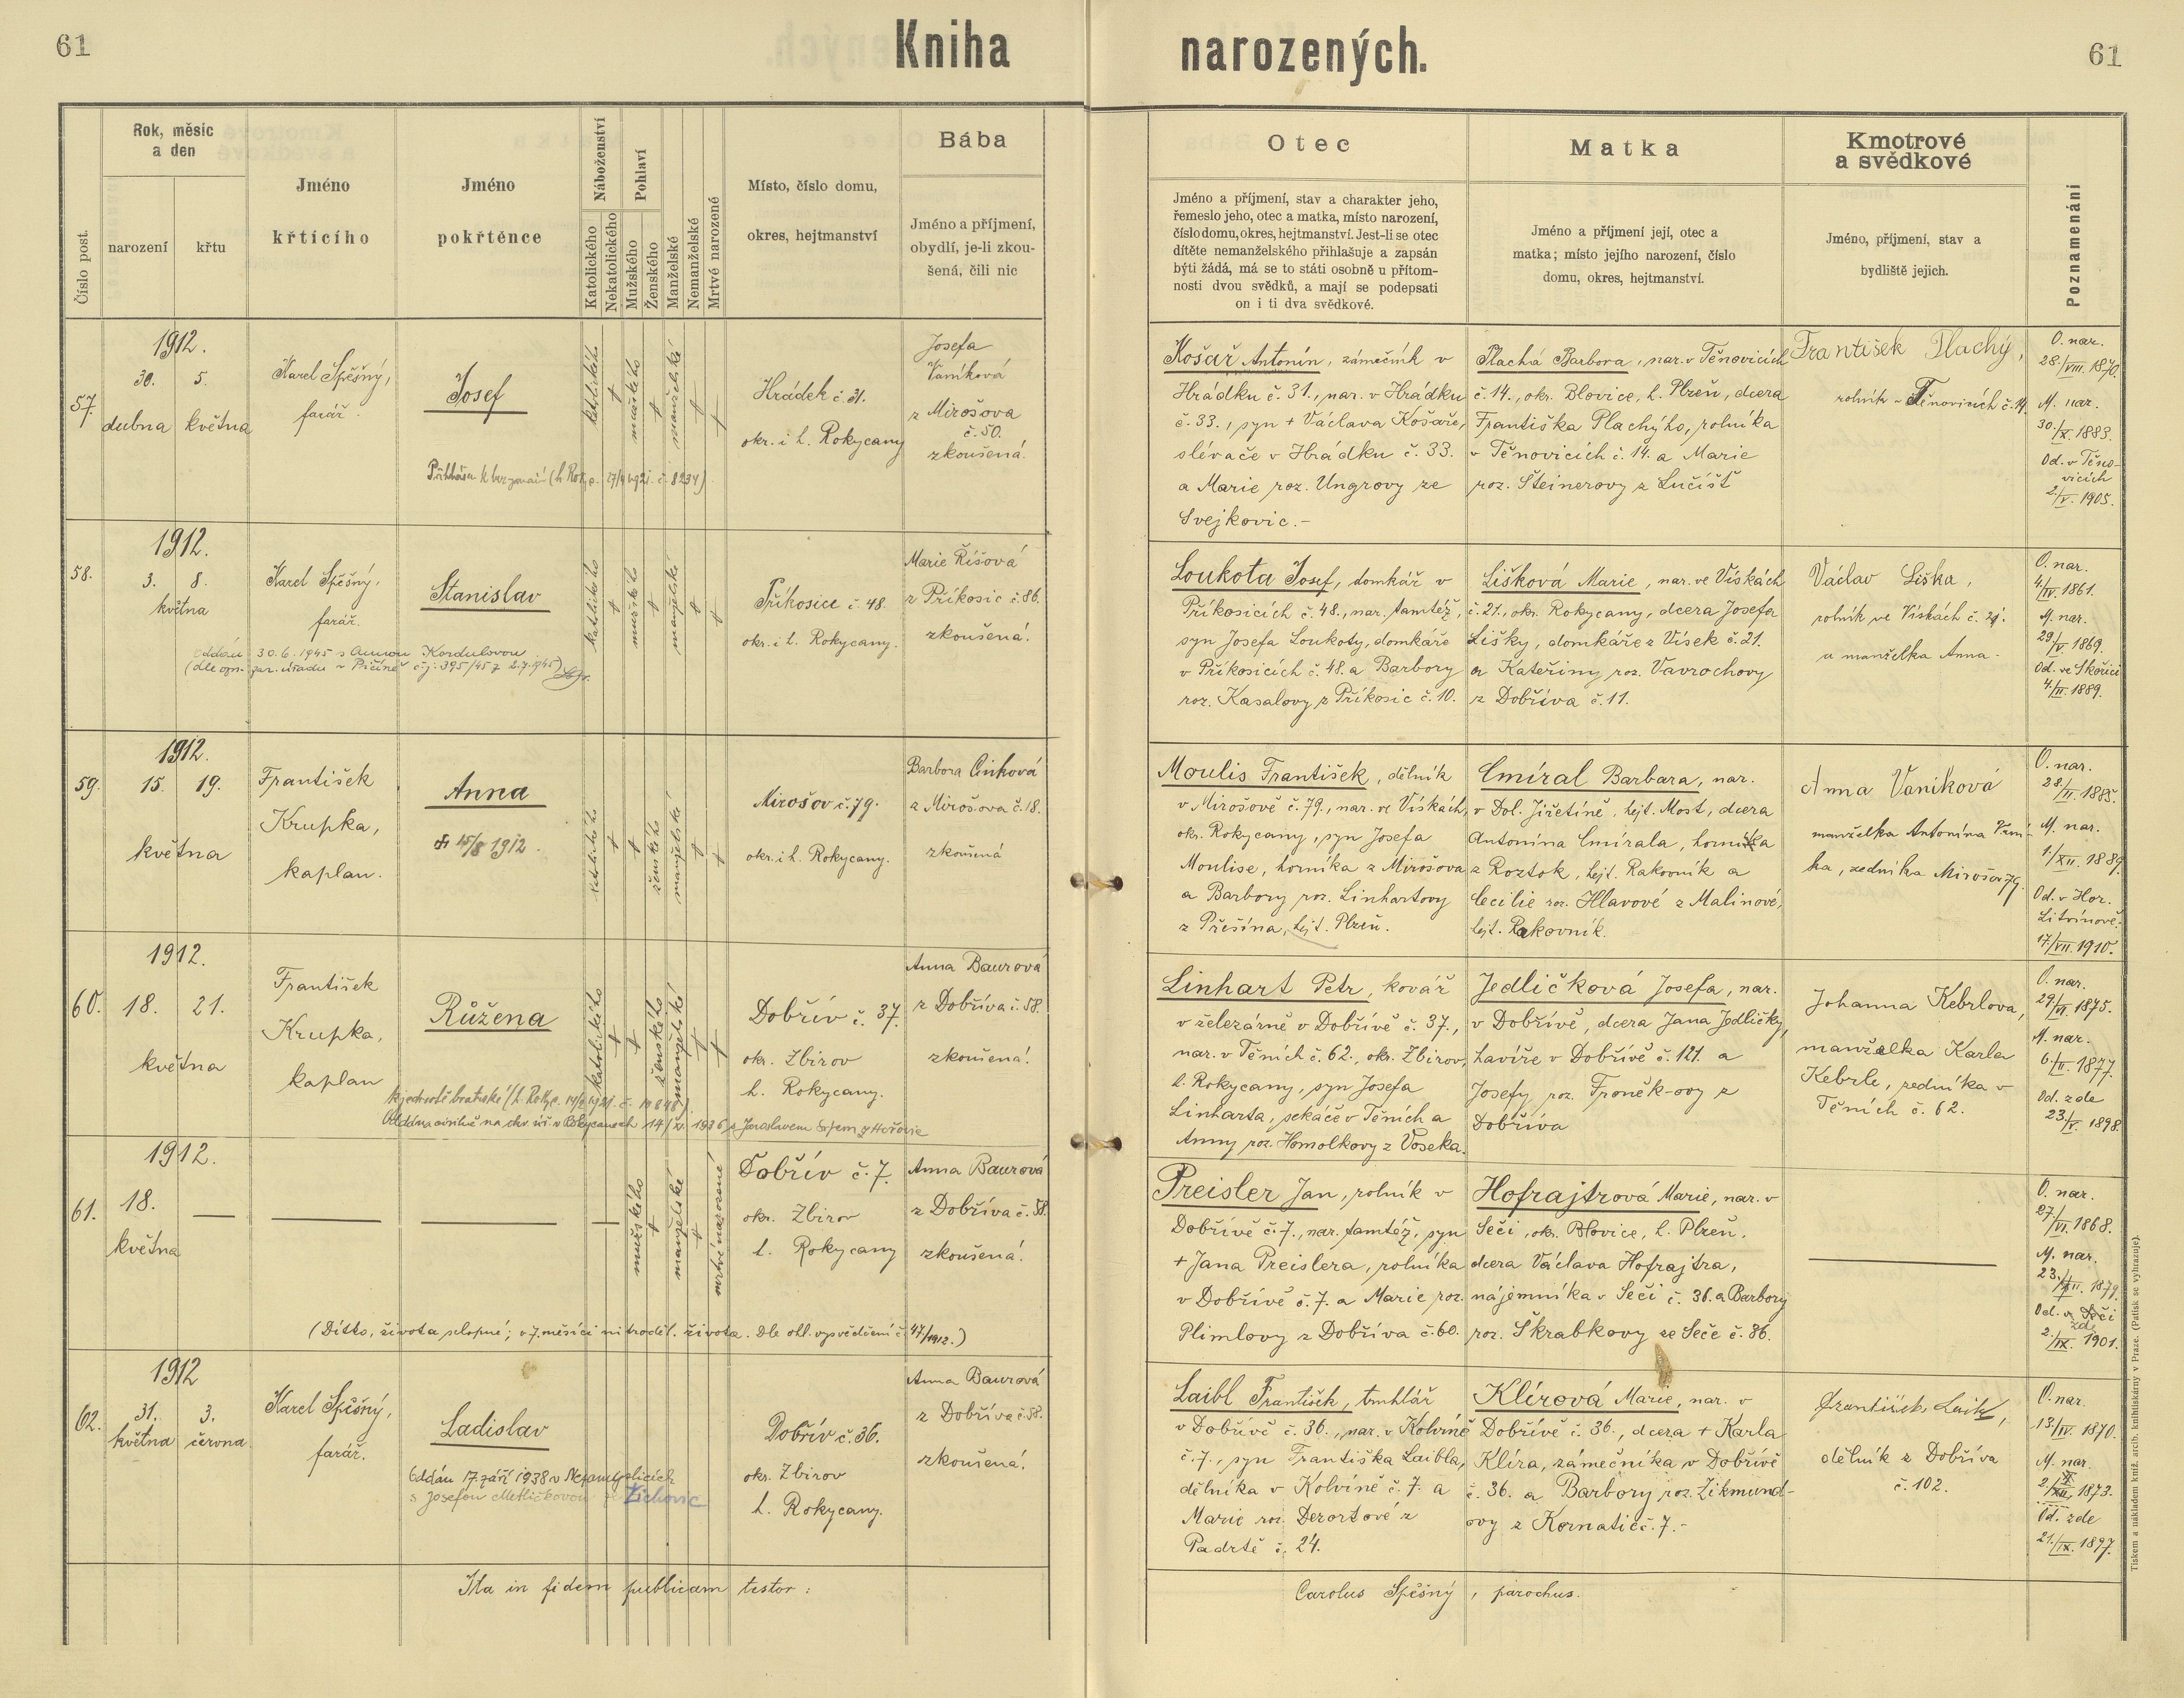 61
Kniha narozených.
61
Číslo post.
Rok, měsíc
a den
narození
křtu
Jméno
křtícího
Jméno
pokřtěnce
Náboženství
Katolického
Nekatolického
Pohlaví
Mužského
Ženského
Manželské
Nemanželské
Mrtvě narozené
Místo, číslo domu,
okres, hejtmanství
Bába
Jméno a příjmení,
obydlí, je-li zkou-
šená, čili nic
Otec
Jméno a příjmení, stav a charakter jeho,
řemeslo jeho, otec a matka, místo narození,
číslo domu, okres, hejtmanství. Jest-li se otec
dítěte nemanželského přihlašuje a zapsán
býti žádá, má se to státi osobně u přítom-
nosti dvou svědků, a mají se podepsati
on i ti dva svědkové.
Matka
Jméno a příjmení její, otec a
matka; místo jejího narození, číslo
domu, okres, hejtmanství.
Kmotrové
a svědkové
Jméno, příjmení, stav a
bydliště jejich.
Poznamenání
57.
1912.
30. 5.
dubna května
Karel Spěšný,
farář.
Josef
katolického
mužského
manželské
Hrádek č. 31.
okr. i h. Rokycany
Josefa
Vaníková
z Mirošova
č. 50.
zkoušená.
Košař Antonín, zámečník v
Hrádku č. 31., nar. v Hrádku
č. 33., syn + Václava Košaře,
slévače v Hrádku č. 33.
a Marie roz. Ungrovy ze
Svejkovic.-
Plachá Barbora, nar. v Těnovicích
č. 14., okr. Blovice, h. Plzeň, dcera
Františka Plachýho, rolníka
v Těnovicích č. 14. a Marie
roz. Šteinerovy z Lučišť
František Plachý,
rolník v Těnovicích č. 14.
O. nar.
28./VIII. 1870.
M. nar.
30./X. 1883.
Od. v Těno-
vicích
2./V. 1905.
58.
1912.
3. 8.
května
Karel Spěšný,
farář.
Stanislav
oddán 30.6.1945 s Annou Kordulovou
(dle ozn. far. úřadu v Příčině čj: 395/45 z 2.7.1945)
katolického
mužského
manželské
Příkosice č. 48.
okr. i h. Rokycany.
Marie Říšová
z Příkosic č. 86.
zkoušená.
Loukota Josef, domkář v
Příkosicích č. 48., nar. tamtéž,
syn Josefa Loukoty, domkáře
v Příkosicích č. 48. a Barbory
roz. Kasalovy z Příkosic č. 10.
Lišková Marie, nar. ve Vískách
č. 21., okr. Rokycany, dcera Josefa
Lišky, domkáře z Vísek č. 21.
a Kateřiny roz. Vavrochovy
z Dobříva č. 11.
Václav Liška,
rolník ve Vískách č. 21.
a manželka Anna.
O. nar.
4./IV. 1861.
M. nar.
29./V. 1869.
Od. ve Skořici
4./II. 1889.
59.
1912.
15. 19.
května
František
Krupka,
kaplan.
Anna
15/8 1912.
katolického
ženského
manželské
Mirošov č. 79.
okr. i h. Rokycany.
Barbora Cinková
z Mirošova č. 18.
zkoušená
Moulis František, dělník
v Mirošově č. 79., nar. ve Vískách,
okr. Rokycany, syn Josefa
Moulise, horníka z Mirošova
a Barbory roz. Linhartovy
z Přešína, hejt. Plzeň.
Cmíral Barbara, nar.
v Dol. Jiřetíně, hejt. Most, dcera
Antonína Cmírala, horníka
z Roztok, hejt. Rakovník a
Cecilie roz. Hlavové z Malinové,
hejt. Rakovník.
Anna Vaníková
manželka Antonína Vaní-
ka, zedníka Mirošov 79.
O. nar.
28./II. 1885.
M. nar.
1./XII. 1889.
Od. v Hor.
Litvínově.
17./VII. 1910.
60.
1912.
18. 21.
května
František
Krupka,
kaplan
Růžena
katolického
ženského
manželské
Dobřív č. 37.
okr. Zbirov
h. Rokycany.
Anna Baurová
z Dobříva č. 58.
zkoušená.
Linhart Petr, kovář
v železárně v Dobřívě č. 37.,
nar. v Těních č. 62., okr. Zbirov,
h. Rokycany, syn Josefa
Linharta, sekáče v Těních a
Anny roz. Homolkovy z Voseka.
Jedličková Josefa, nar.
v Dobřívě, dcera Jana Jedličky,
havíře v Dobřívě č. 121. a
Josefy roz. Froněk-ovy z
Dobříva
Johanna Kebrlova,
manželka Karla
Kebrle, zedníka v
Těních č. 62.
O. nar.
29./VI. 1875.
M. nar.
6./II. 1877.
Od. zde
23./V. 1898.
61.
1912.
18.
května
mužského
manželské
mrtvě narozené
Dobřív č. 7.
okr. Zbirov
h. Rokycany
Anna Baurová
z Dobříva č. 58.
zkoušená.
(Dítko, života schopné; v 7. měsíci nitroděl. života. Dle ohl. vysvědčení č. 47/1912.)
Preisler Jan, rolník v
Dobřívě č. 7., nar. tamtéž, syn
+ Jana Preislera, rolníka
v Dobřívě č. 7. a Marie roz.
Plimlovy z Dobříva č. 60.
Hofrajtrová Marie, nar. v
Seči, okr. Blovice, h. Plzeň.
dcera Václava Hofrajtra,
nájemníka v Seči č. 36. a Barbory
roz. Škrabkovy ze Seče č. 36.
O. nar.
27./VI. 1868.
M. nar.
1879.
Od. v Seči
zde
2./IX. 1901.
62.
1912
31. 3.
května června
Karel Spěšný,
farář.
Ladislav
Oddán 17. září 1938 v Nezamyslicích
s Josefou Metličkovou z Žichovic
Dobřív č. 36.
okr. Zbirov
h. Rokycany.
Anna Baurová
z Dobříva č. 58.
zkoušená.
Laibl František, truhlář
v Dobřívě č. 36., nar. v Kolvíně
č. 7., syn Františka Laibla,
dělníka v Kolvíně č. 7. a
Marie roz. Dezortové z
Padrtě č. 24.
Klírová Marie, nar. v
Dobřívě č. 36., dcera + Karla
Klíra, zámečníka v Dobřívě
č. 36. a Barbory roz. Zikmund-
ovy z Kornatic č. 7.-
František Laibl,
dělník z Dobříva
č. 102.
O. nar.
13./IV. 1870.
M. nar.
1873.
Od. zde
21./IX. 1897.
Ita in fidem publicam testor:
Carolus Spěšný, parochus.
Tiskem a nákladem kníž. arcib. knihtiskárny v Praze. (Patisk se vyhrazuje).